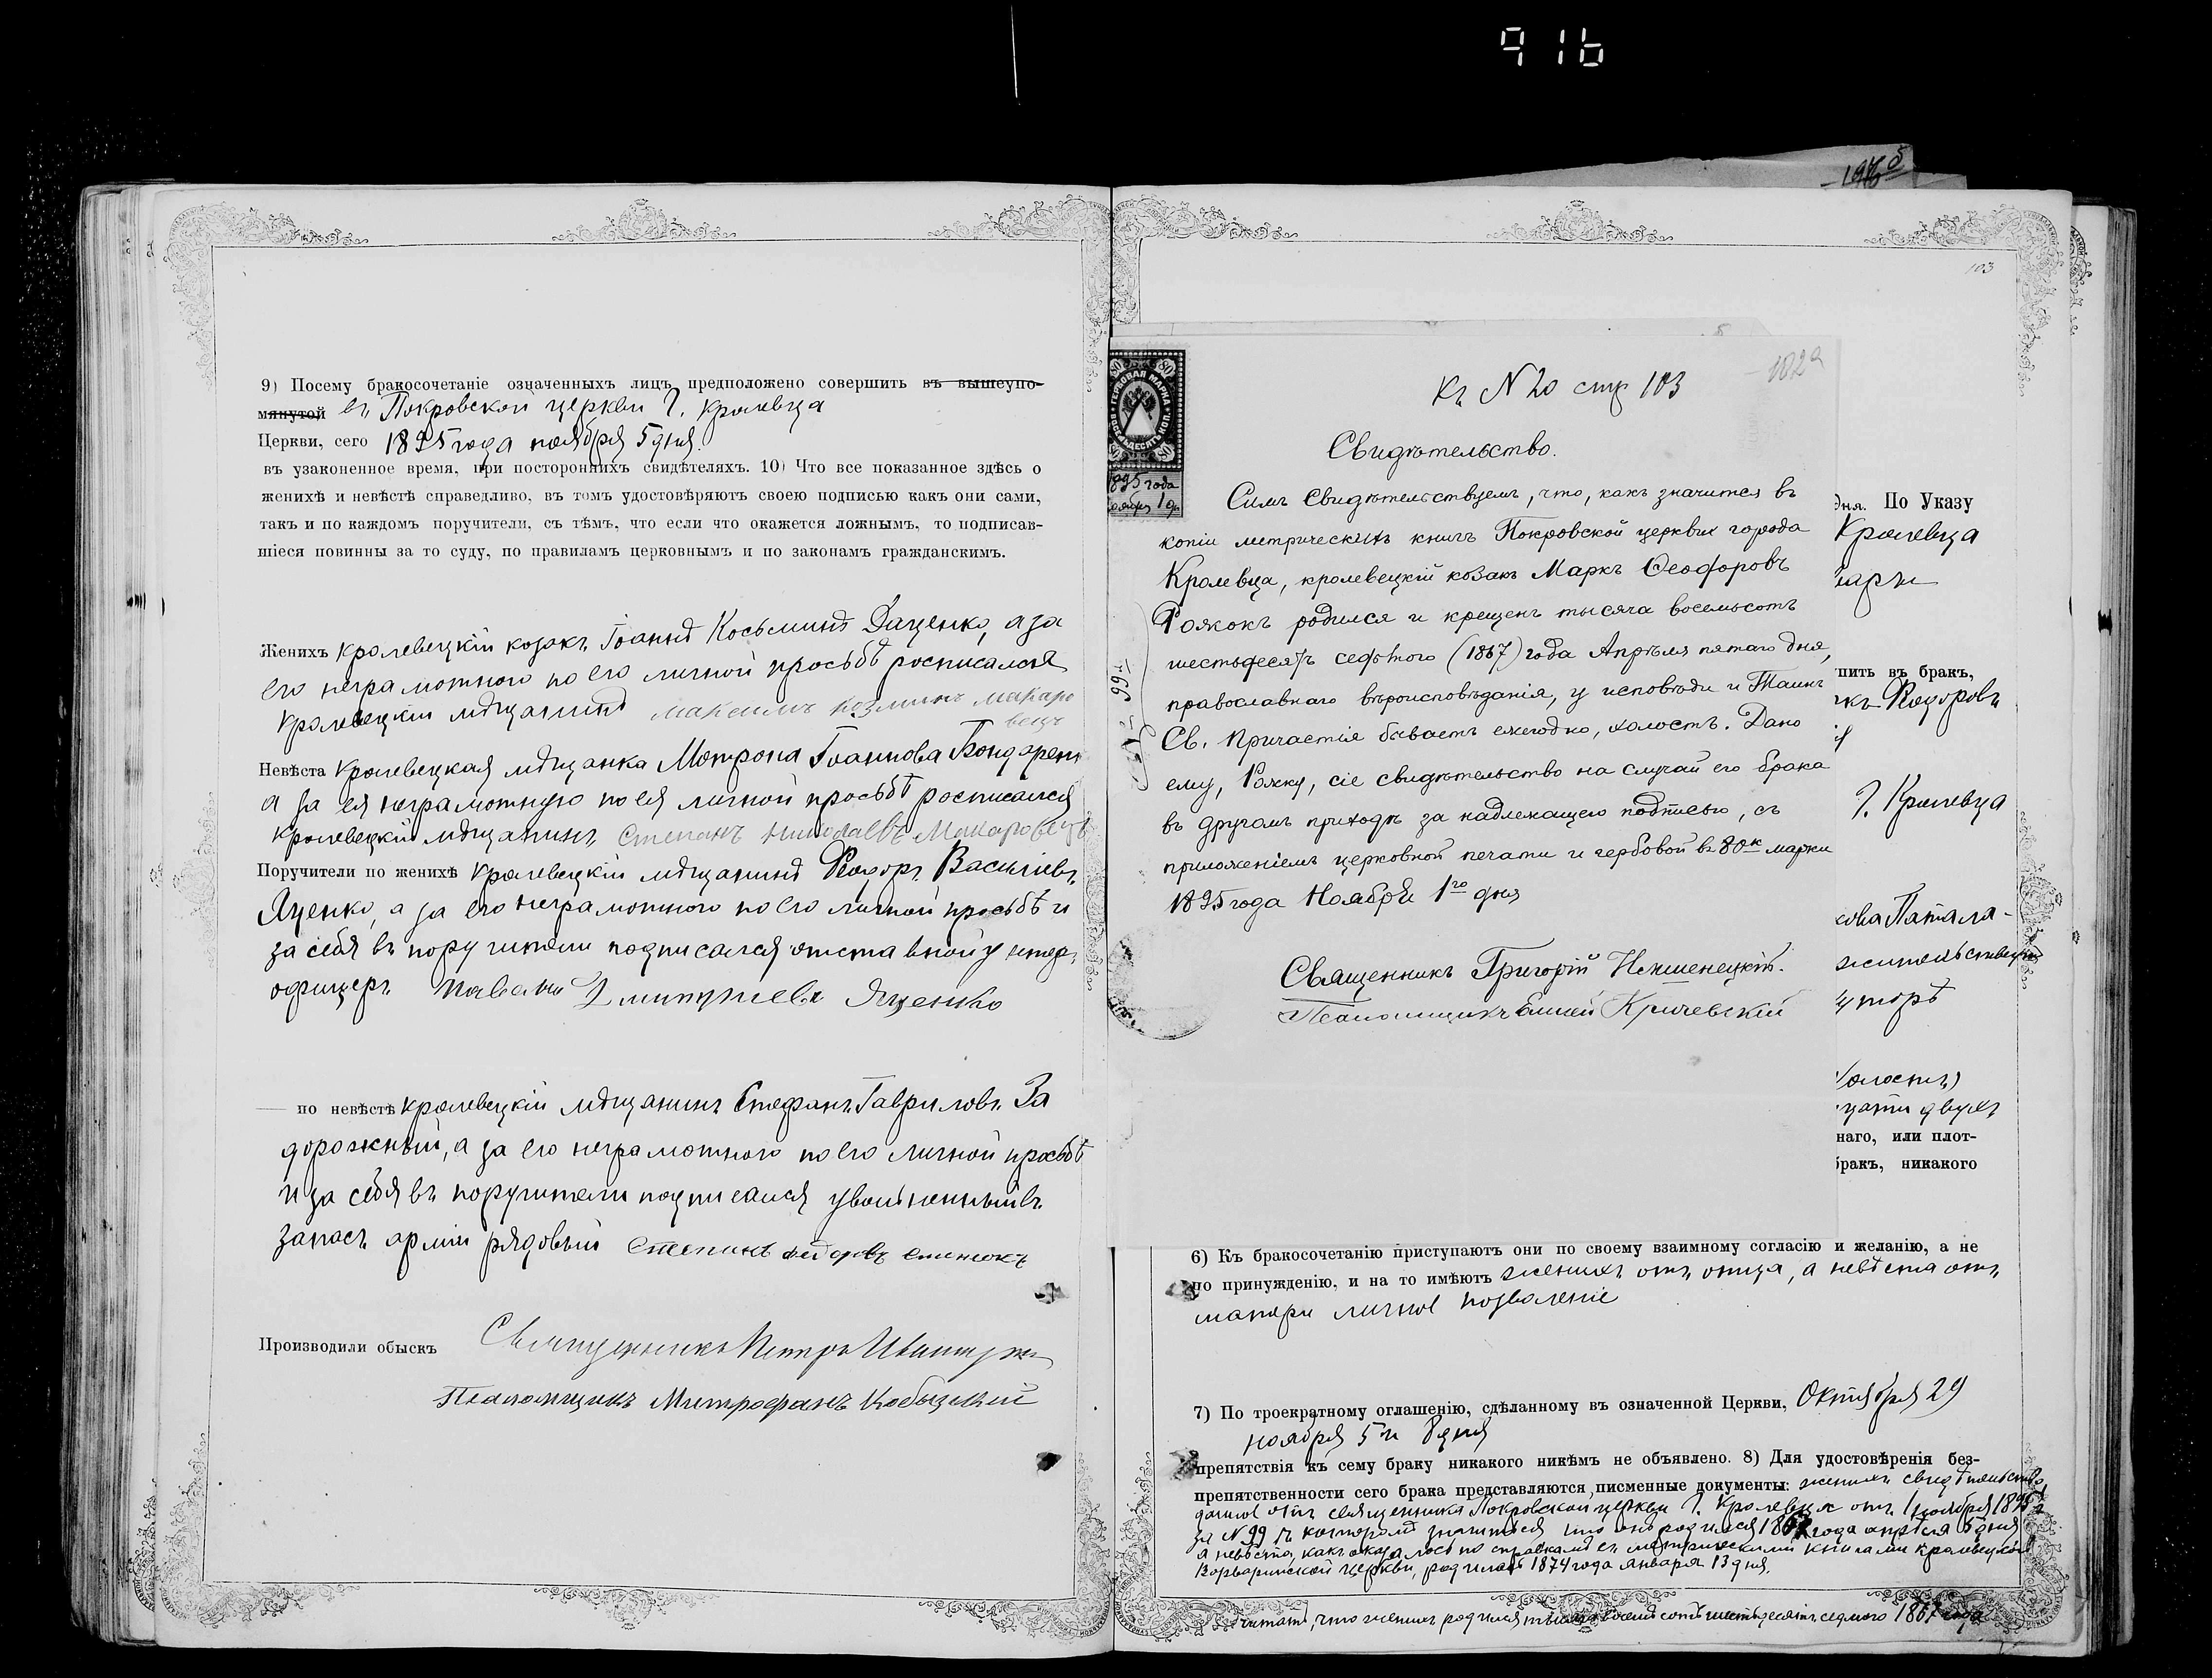 916
1946
9) Посему бракосочетаніе означенныхъ лицъ предположено совершить въ вышеупо-
мянутой въ Покровской церкви г. Кролевца
Церкви, сего 1895 года ноября 5 дня.
въ узаконенное время, при постороннихъ свидѣтеляхъ. 10) Что все показанное здѣсь о
женихѣ и невѣстѣ справедливо, въ томъ удостовѣряютъ своею подписью какъ они сами,
такъ и по каждомъ поручители, съ тѣмъ, что если что окажется ложнымъ, то подписав-
шіеся повинны за то суду, по правиламъ церковнымъ и по законамъ гражданскимъ.
Женихъ Кролевецкій козакъ Іоаннъ Косьминъ Даценко, а за
его неграмотного по его личной просьбѣ росписался
Кролевецкій мѣщанинъ Максимъ Козминъ Макаро
вецъ
Невѣста Кролевецкая мѣщанка Мотрона Іоаннова Бондарен
а за ея неграмотную по ея личной просьбѣ росписался
Кролевецкій мѣщанинъ Степанъ Николаевъ Макаровецъ
Поручители по женихѣ Кролевецкій мѣщанинъ Ѳеодоръ Василіевъ
Яценко, а за его неграмотного по его личной просьбѣ и
за себя въ поручители подписался отставной унтер.
офицеръ Павелъ Дмитріевъ Яценко
по невѣстѣ Кролевецкій мѣщанинъ Стефанъ Гавриловъ За
дорожный, а за его неграмотного по его личной просьбѣ
и за себя въ поручители подписался уволенный въ
запасъ арміи рядовый Степанъ Федоровъ
Производили обыскъ Священникъ Петръ
Псаломщикъ Митрофанъ
103
102а
Къ N 20 стр 103
ГЕРБОВАЯ МАРКА
80
1895 года
Ноября 1 д.
Свидѣтельство.
Симъ свидѣтельствуемъ, что, какъ значится въ
копіи метрическихъ книгъ Покровской церквы города
Кролевца, кролевецкій козакъ Маркъ Ѳеодоровъ
Рожокъ родился и крещенъ тысяча восемьсотъ
шестьдесятъ седьмого (1867) года Апрѣля пятаго дня,
православнаго вѣроисповѣданія, у исповѣди и Таинъ
Св. Причастія бываетъ ежегодно, холостъ. Дано
ему, Рожку, сіе свидѣтельство на случай его брака
въ другомъ приходѣ за надлежащею подписью, съ
приложеніемъ церковной печати и гербовой въ 80к марки
1895 года Ноября 1го дня
99
Священникъ Григорій
Псаломщикъ Кричевскій
дня. По Указу
Кролевца
пить въ бракъ,
Ѳеодоровъ
г. Кролевца
жительствующ
хуторѣ
холостъ)
цати двухъ
наго, или плот-
бракъ, никакого
6) Къ бракосочетанію приступаютъ они по своему взаимному согласію и желанію, а не
по принужденію, и на то имѣютъ женихъ отъ отца, а невѣста отъ
матери личное позволеніе
7) По троекратному оглашенію, сдѣланному въ означенной Церкви, Октября 29
ноября 5 и 8 дня
препятствія къ сему браку никакого никѣмъ не объявлено. 8) Для удостовѣренія без-
препятственности сего брака представляются письменные документы: женихъ свидѣтельство
данное отъ священника Покровской церкви г. Кролевца отъ 1 ноября 1895 г
за N 99 въ которомъ значится что онъ родился 1867 года апрѣля 5 дня
а невѣста, какъ оказалось по справкамъ съ метрическими книгами Кролевецкой
Варваринской церкви, родилась 1874 года января 13 дня.
Читать, что женихъ родился тысяча восемьсотъ шестьдесятъ седмого 1867 года